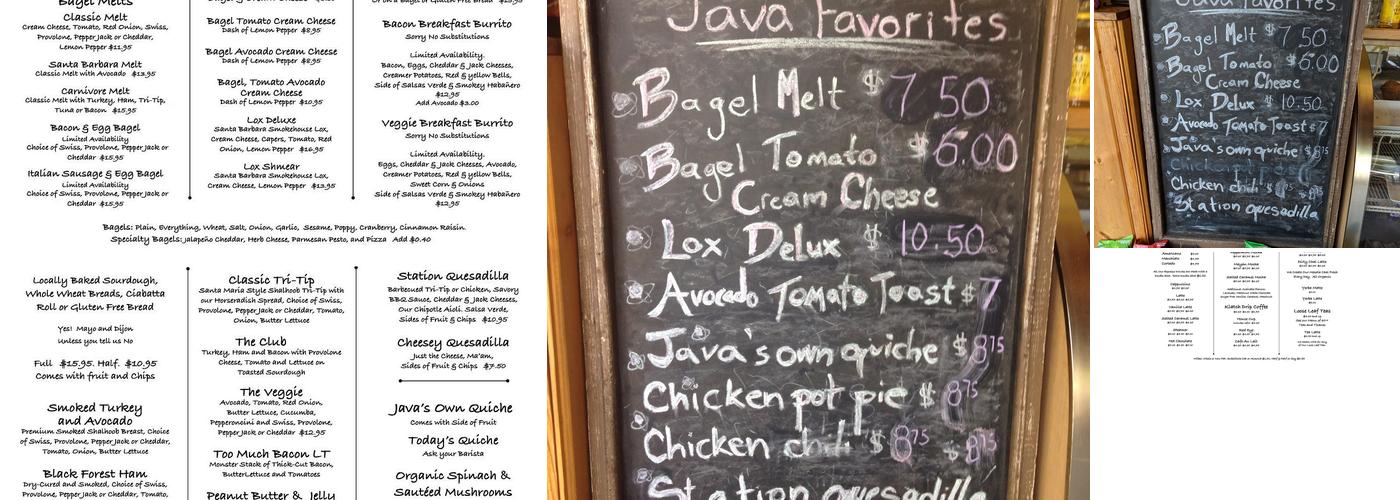 Bagel Melts
Classic Melt
Cream Cheese, Tomato, Red Onion, Swiss,
Provolone, PepperJack or Cheddar,
Lemon Pepper $11.95
Santa Barbara Melt
Classic Melt with Avocado $13.95
Carnivore Melt
Classic Melt with Turkey, Ham, Tri-Tip,
Tuna or Bacon $15.95
Bacon & Egg Bagel
Limited Availability
Choice of Swiss, Provolone, PepperJack or
Cheddar $15.95
Italian Sausage & Egg Bagel
Limited Availability
Choice of Swiss, Provolone, PepperJack or
Cheddar $15.95
Bagel Tomato Cream Cheese
Dash of Lemon Pepper $8.95
Bagel Avocado Cream Cheese
Dash of Lemon Pepper $8.95
Bagel, Tomato Avocado
Cream Cheese
Dash of Lemon Pepper $10.95
Lox Deluxe
Santa Barbara Smokehouse Lox,
Cream Cheese, Capers, Tomato, Red
Onion, Lemon Pepper $16.95
Lox Shmear
Santa Barbara Smokehouse Lox,
Cream Cheese, Lemon Pepper $13.95
Bacon Breakfast Burrito
Sorry No Substitutions
Limited Availability.
Bacon, Eggs, Cheddar & Jack Cheeses,
Creamer Potatoes, Red & yellow Bells,
Side of Salsas Verde & Smokey Habañero
$12.95
Add Avocado $3.00
Veggie Breakfast Burrito
Sorry No Substitutions
Limited Availability.
Eggs, Cheddar & Jack Cheeses, Avocado,
Creamer Potatoes, Red & yellow Bells,
Sweet Corn & Onions
Side of Salsas Verde & Smokey Habañero
$12.95
Bagels: Plain, Everything, Wheat, Salt, Onion, Garlic, Sesame, Poppy, Cranberry, Cinnamon Raisin.
Specialty Bagels: Jalapeño Cheddar, Herb Cheese, Parmesan Pesto, and Pizza Add $0.40
Locally Baked Sourdough,
Whole Wheat Breads, Ciabatta
Roll or Gluten Free Bread
Yes! Mayo and Dijon
Unless you tell us No
Full $15.95. Half. $10.95
Comes with fruit and Chips
Smoked Turkey
and Avocado
Premium Smoked Shalhoob Breast, Choice
of Swiss, Provolone, PepperJack or Cheddar,
Tomato, Onion, Butter Lettuce
Black Forest Ham
Dry-Cured and Smoked, Choice of Swiss,
Provolone, PepperJack or Cheddar, Tomato,
Classic Tri-Tip
Santa Maria Style Shalhoob Tri-Tip with
our Horseradish Spread, Choice of Swiss,
Provolone, PepperJack or Cheddar, Tomato,
Onion, Butter Lettuce
The Club
Turkey, Ham and Bacon with Provolone
Cheese, Tomato and Lettuce on
Toasted Sourdough
The Veggie
Avocado, Tomato, Red Onion,
Butter Lettuce, Cucumba,
Pepperoncini and Swiss, Provolone,
PepperJack or Cheddar $12.95
Too Much Bacon LT
Monster Stack of Thick-Cut Bacon,
ButterLettuce and Tomatoes
Peanut Butter & Jelly
Station Quesadilla
Barbecued Tri-Tip or Chicken, Savory
BBQ Sauce, Cheddar & Jack Cheeses,
Our Chipotle Aioli. Salsa Verde,
Sides of Fruit & Chips $10.95
Cheesey Quesadilla
Just the Cheese, Ma'am,
Sides of Fruit & Chips $7.50
Java's Own Quiche
Comes with Side of Fruit
Today's Quiche
Ask your Barista
Organic Spinach &
Sautéed Mushrooms
Java Favorites
Bagel Melt $7.50
Bagel Tomato $6.00
Cream Cheese
Lox Delux $10.50
Avocado Tomato Toast $7
Java's own quiche $8.75
Chicken pot pie $8.75
Chicken chili $8.75 $8.75
Station quesadilla
Java Favorites
Bagel Melt $7.50
Bagel Tomato $6.00
Cream Cheese
Lox Delux $10.50
Avocado Tomato Toast $7
Java's own quiche $8.75
Chicken chili
Station quesadilla
Cappuccino
Latte
Vanilla Latte
Salted Caramel Latte
Steamer
Hot Chocolate
Salted Caramel Mocha
Klatch Drip Coffee
Red Eye
Café Au Lait
Dirty Chai Latte
Yerba Mate
Loose Leaf Teas
Tea Latte